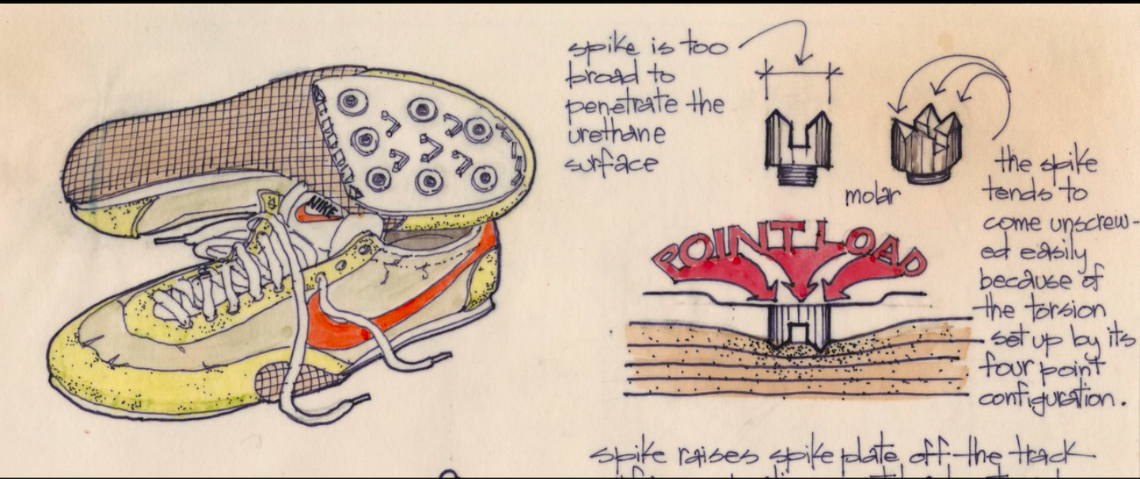 spike is too
broad to
penetrate the
urethane
surface
molar
the spike
tends to
come unscrew-
ed easily
because of
the torsion
set up by its
four point
configuration.
NIKE
POINT LOAD
spike raises spike plate off the track